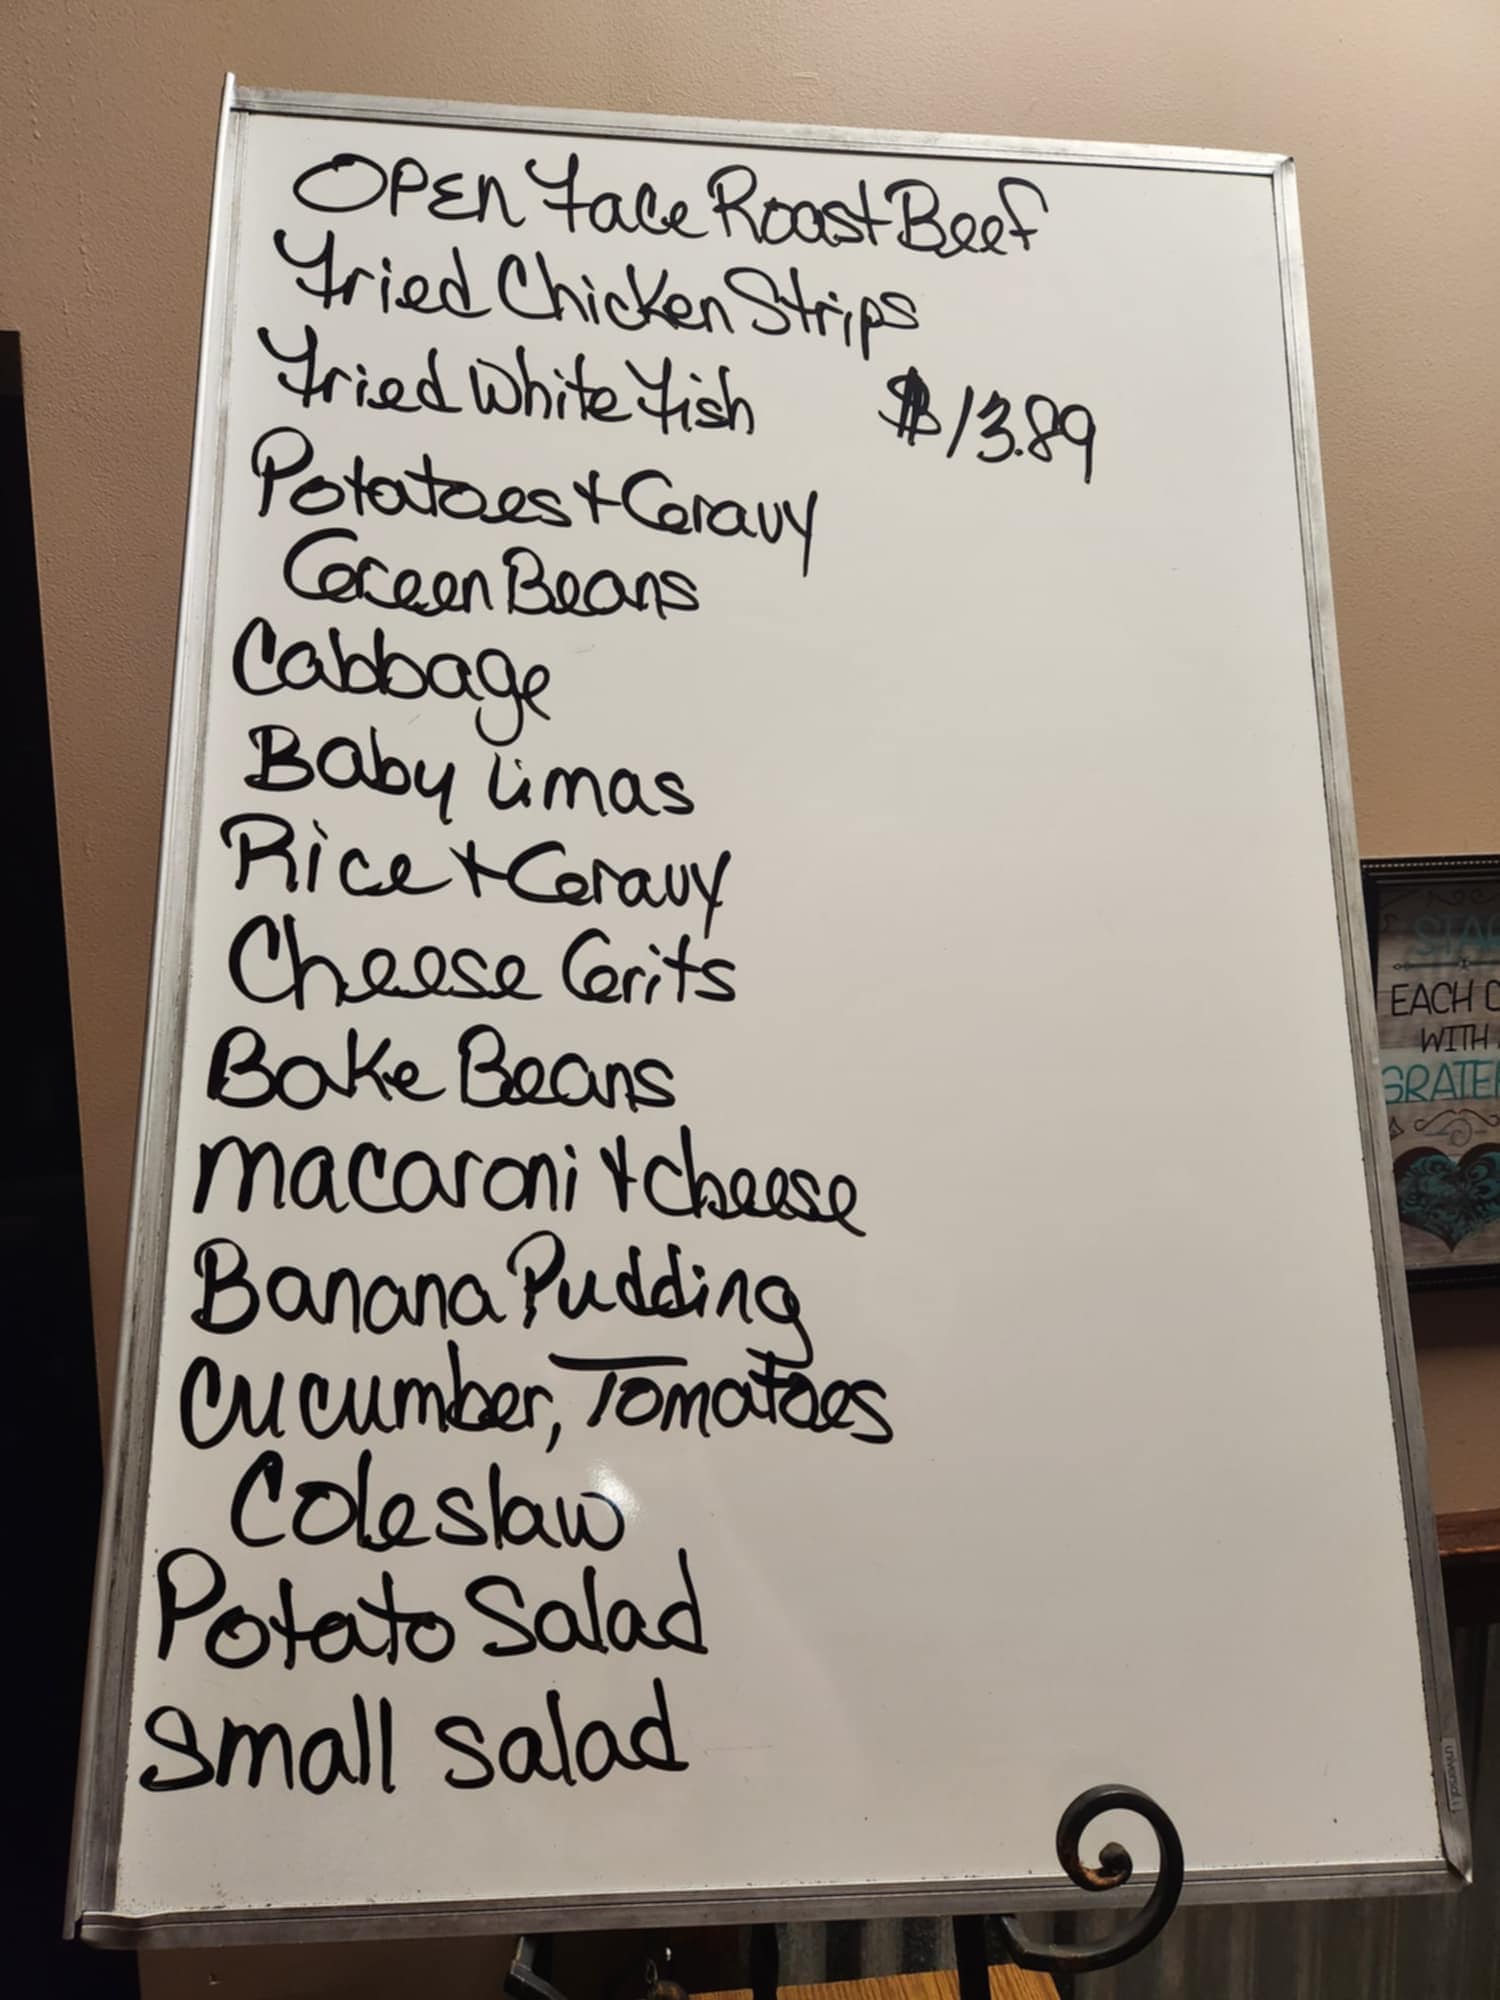 Open Face Roast Beef
Fried Chicken Strips
Fried White Fish $13.89
Potatoes + Gravy
Green Beans
Cabbage
Baby Limas
Rice + Gravy
Cheese Grits
Bake Beans
Macaroni + Cheese
Banana Pudding
Cucumber, Tomatoes
Coleslaw
Potato Salad
Small Salad
EACH
WITH
universal